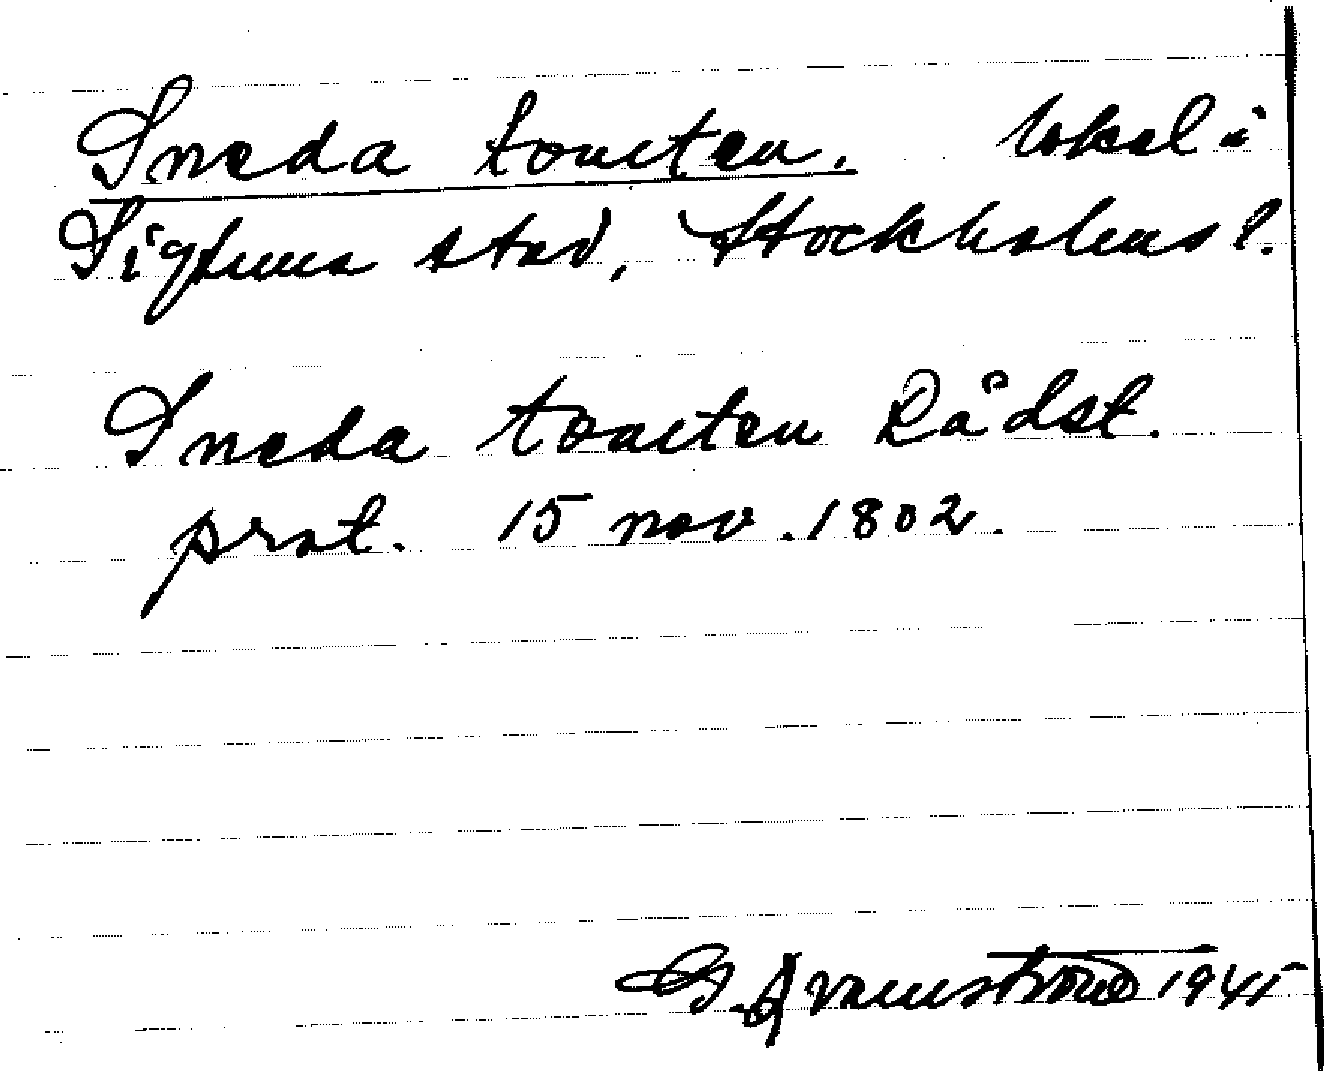 Sneda tomten. lokal i
Sigtuna stad, Stockholms l.
Sneda tomten Rådst.
prot. 15 nov. 1802.
1945